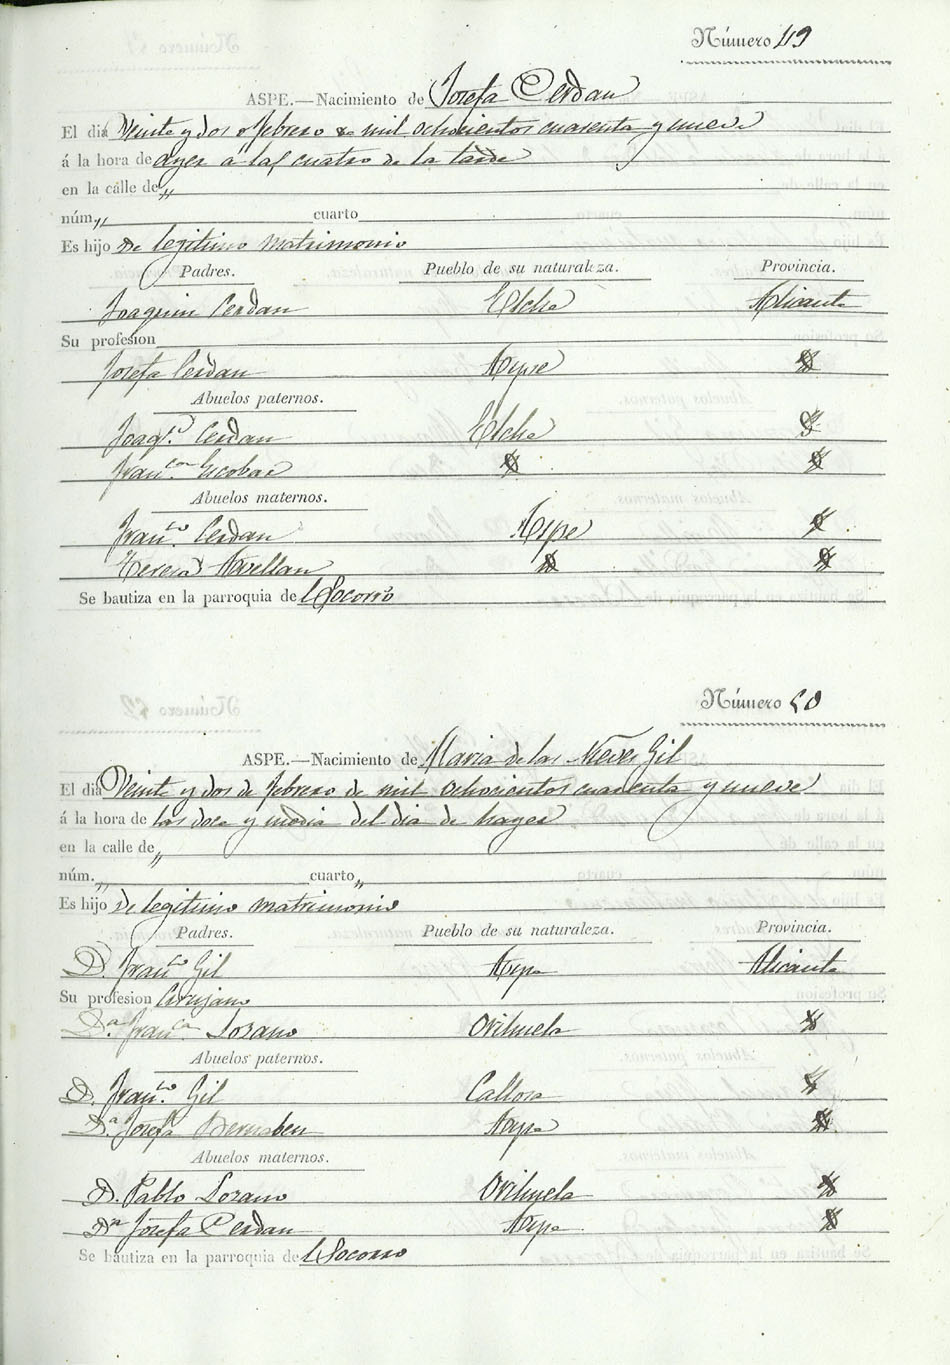 Número 49
ASPE.—Nacimiento de Josefa Cerdan
El dia Veinte y dos de febrero de mil ochocientos cuarenta y nueve
á la hora de ayer a las cuatro de la tarde
en la cálle de „
núm. „ cuarto
Es hijo de legitimo matrimonio
Padres. Pueblo de su naturaleza. Provincia.
Joaquin Cerdan Elche Alicante
Su profesion
Josefa Cerdan Aspe
Abuelos paternos.
Joaqn. Cerdan Elche
Franca Escobar
Abuelos maternos.
Franco. Cerdan Aspe
Teresa Avellan
Se bautiza en la parroquia de l Socorro
Número 50
ASPE.—Nacimiento de Maria de las Nieves Gil
El dia Veinte y dos de febrero de mil ochocientos cuarenta y nueve
á la hora de las doce y media del dia de hayer
en la calle de „
núm. „ cuarto „
Es hijo de legitimo matrimonio
Padres. Pueblo de su naturaleza. Provincia.
D. Franco Gil Aspe Alicante
Su profesion Cirujano
Da. Franca Lozano Orihuela
Abuelos paternos.
D. Franco. Gil Callosa
Da Josefa Bernabeu Aspe
Abuelos maternos.
D. Pablo Lozano Orihuela
Da Josefa Cerdan Aspe
Se bautiza en la parroquia de l Socorro